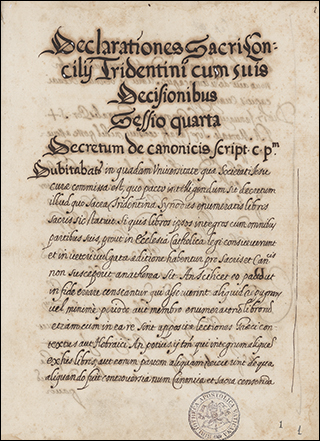 Declarationes Sacri Con-
cilij Tridentini cum suis
Decisionibus
Sessio quarta
Decretum de canonicis script. c. pm
Dubitabat in quadam Universitate que Societati Jesu
curæ commissa est, quo pacto intelligendum sit decretum
illud quo Sacra Tridentina Synodus enumeratis libris
sacris sic statuit. Si quis libros ipsos integros cum omnibus
partibus suis, prout in Ecclesia Catholica legi consueverunt
et in veteri vulgata aeditione habentur pro Sacris et Can-
non susceperit anathema sit. An scilicet eo
in fide errare censeantur qui dixerint aliquid
vel minime periodo aut membro enumeratorum librorum
etiam cum in ea re sunt appositæ lectiones
contextus aut Hebraici An potius
ex his libris, aut eorum partem aliquam
aliquando fuit controversia num Canonica et sacra
1